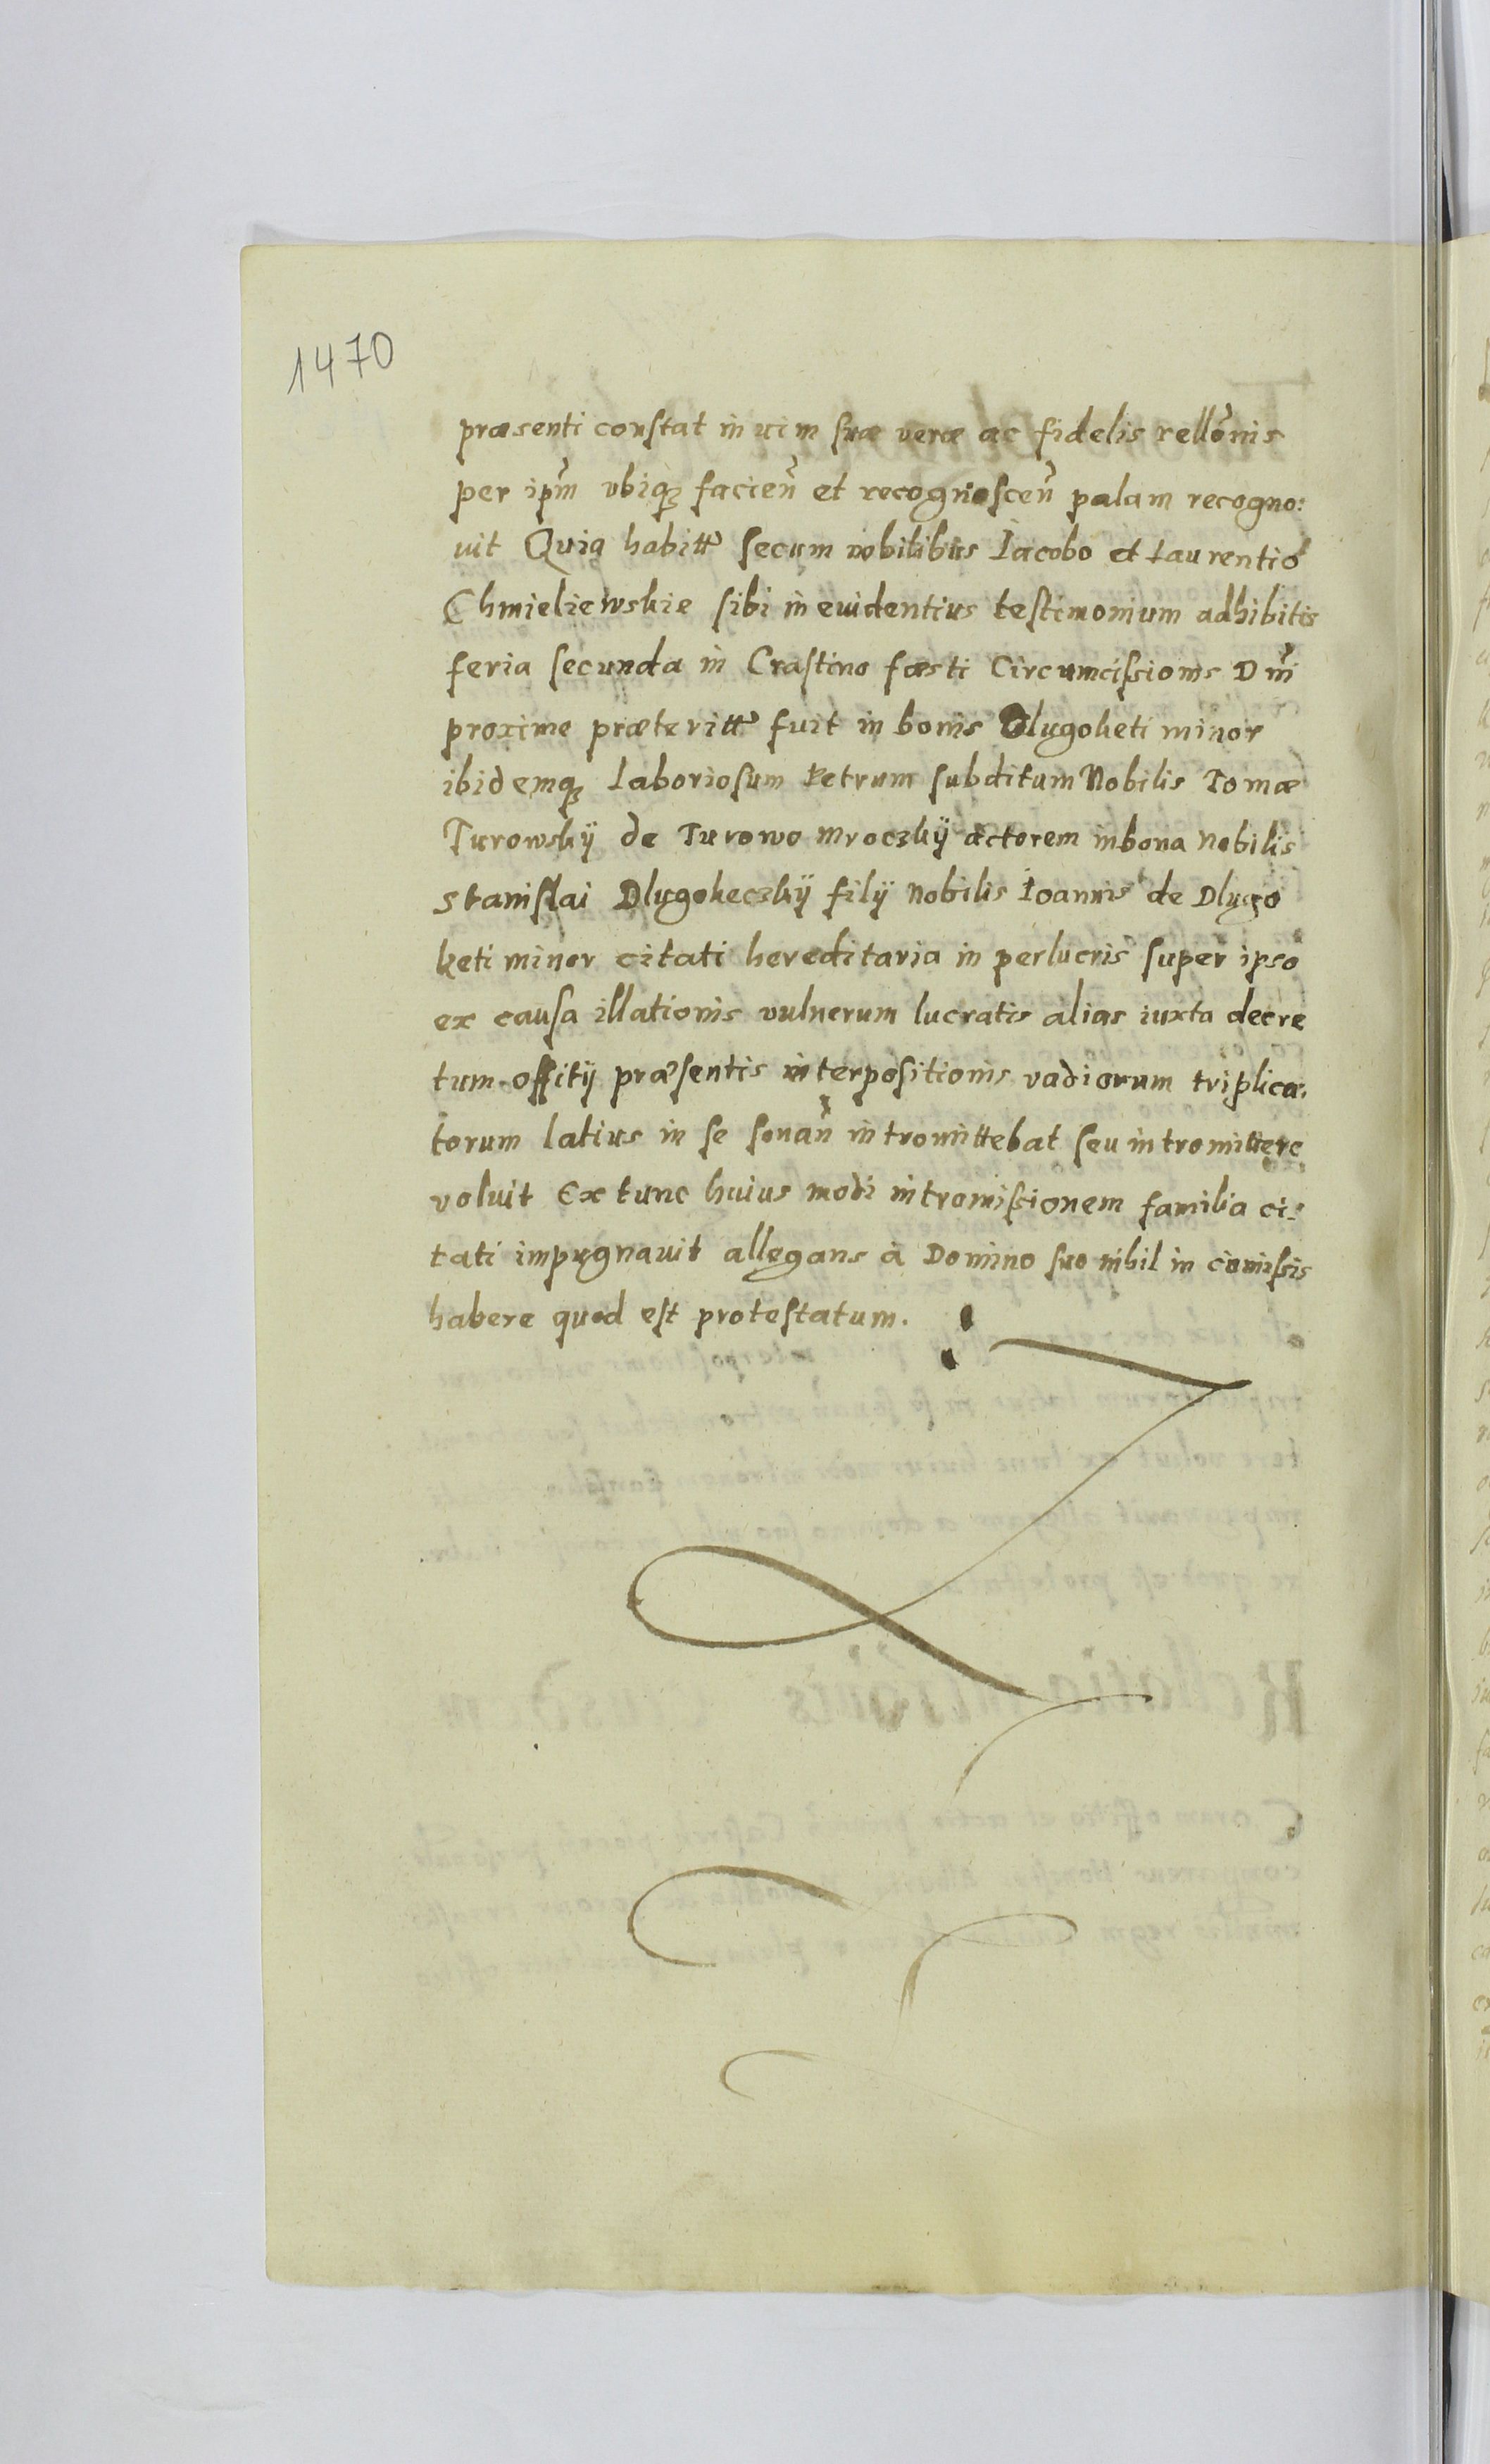 1470
præsenti constat in uim suæ veræ ac fidelis rellõnis
per ipm̃ vbiqꝫ facieñ et recognosceñ palam recogno:
uit Quia habitt secum nobilibus Iacobo et Laurentio
Chmieliewskie sibi in euidentius testimonium adhibitis
feria secunda in Crastino fæsti Circumcissionis Dñi
proxime præteritt fuit in bonis Dlugoketi minor
ibidemqꝫ Laboriosum Petrum subditum Nobilis Tomæ
Turowskÿ de Turowo Mroczkÿ actorem in bona nobilis
Stanislai Dlugokeczkÿ filÿ Nobilis Ioannis de Dlugo
keti minor citati hereditaria in perlucris super ipso
ex causa illationis vulnerum lucratis alias iuxta decre
tum offitÿ præsentis interpositionis vadiorum triplica.
torum latius in se sonañ intromittebat seu intromittere
voluit Ex tunc huius modi intromissionem familia ci-
tati impugnauit allegans à Domino suo nihil in comissis
habere quod est protestatum.